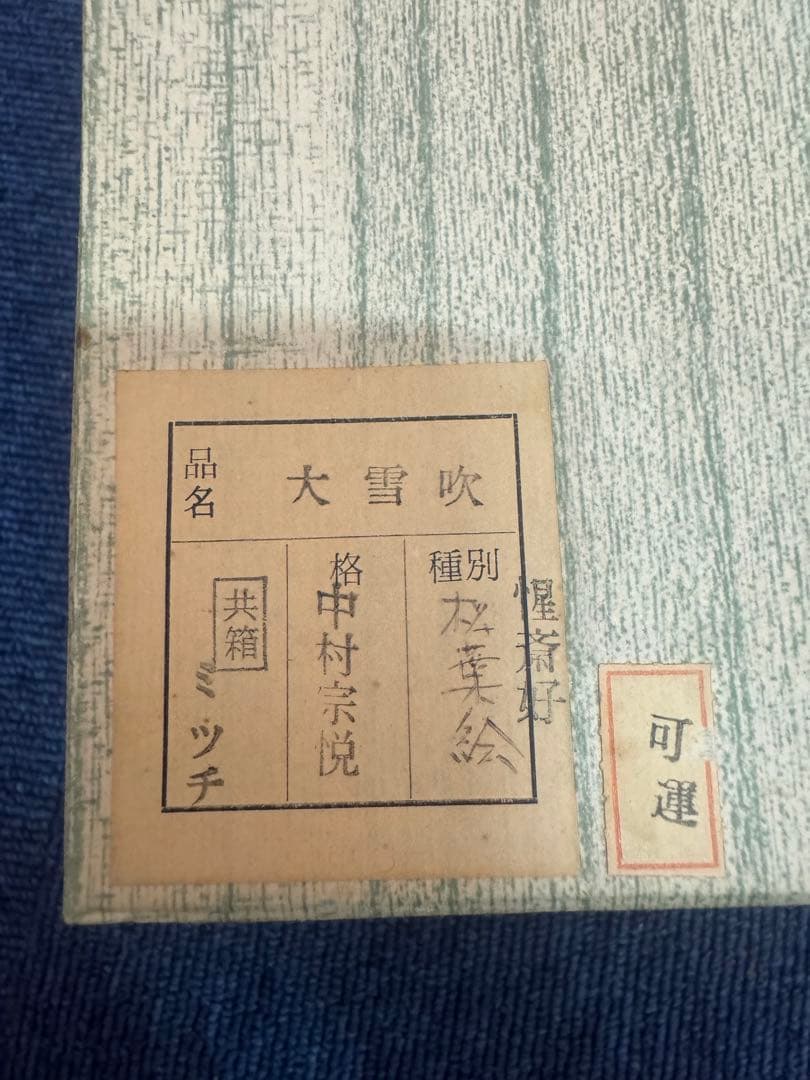 品名
大雪吹
種別
惺斎好
松葉絵
格
中村宗悦
共箱
ミツチ
可運